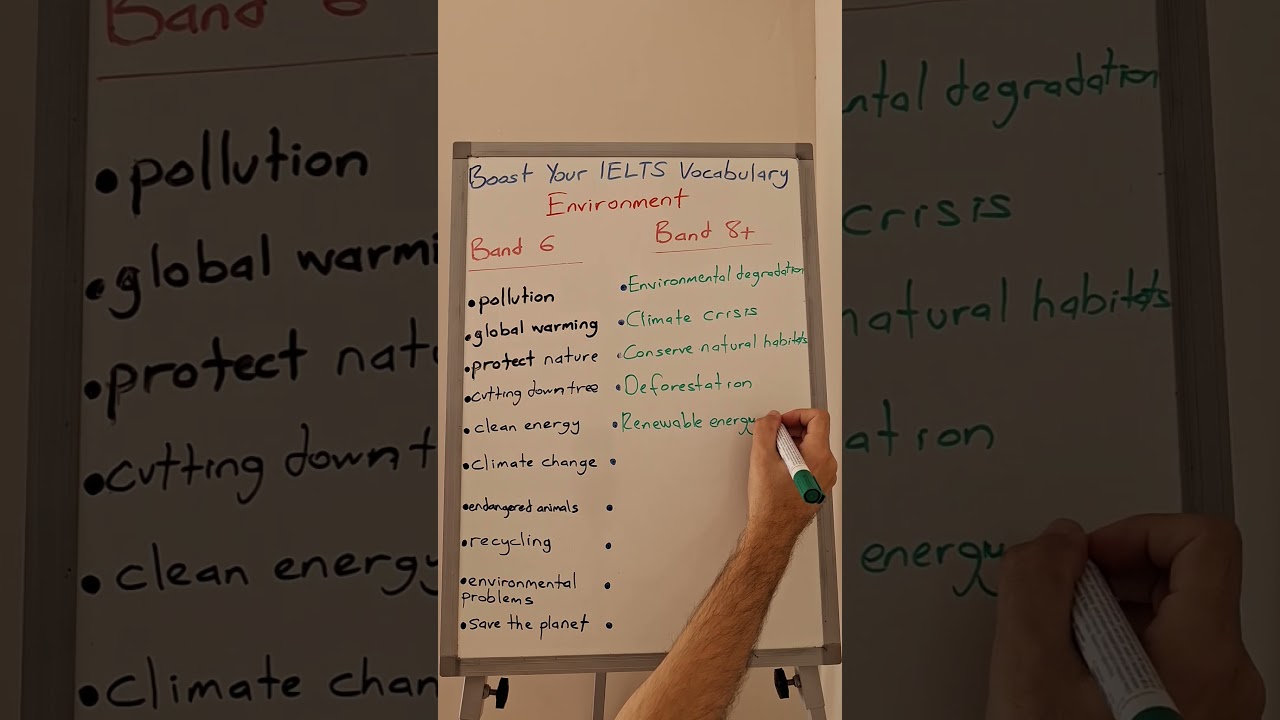 Boost Your IELTS Vocabulary
Environment
Band 6
Band 8+
• pollution
• Environmental degradation
• global warming
• Climate crisis
• protect nature
• Conserve natural habitats
• cutting down tree
• Deforestation
• clean energy
• Renewable energy
• climate change
•
• endangered animals
•
• recycling
•
• environmental
problems
•
• save the planet
•